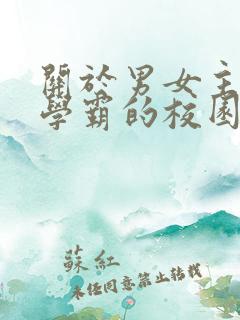 關於男女主
學霸的校園
蘇紅
未經同意禁止轉載